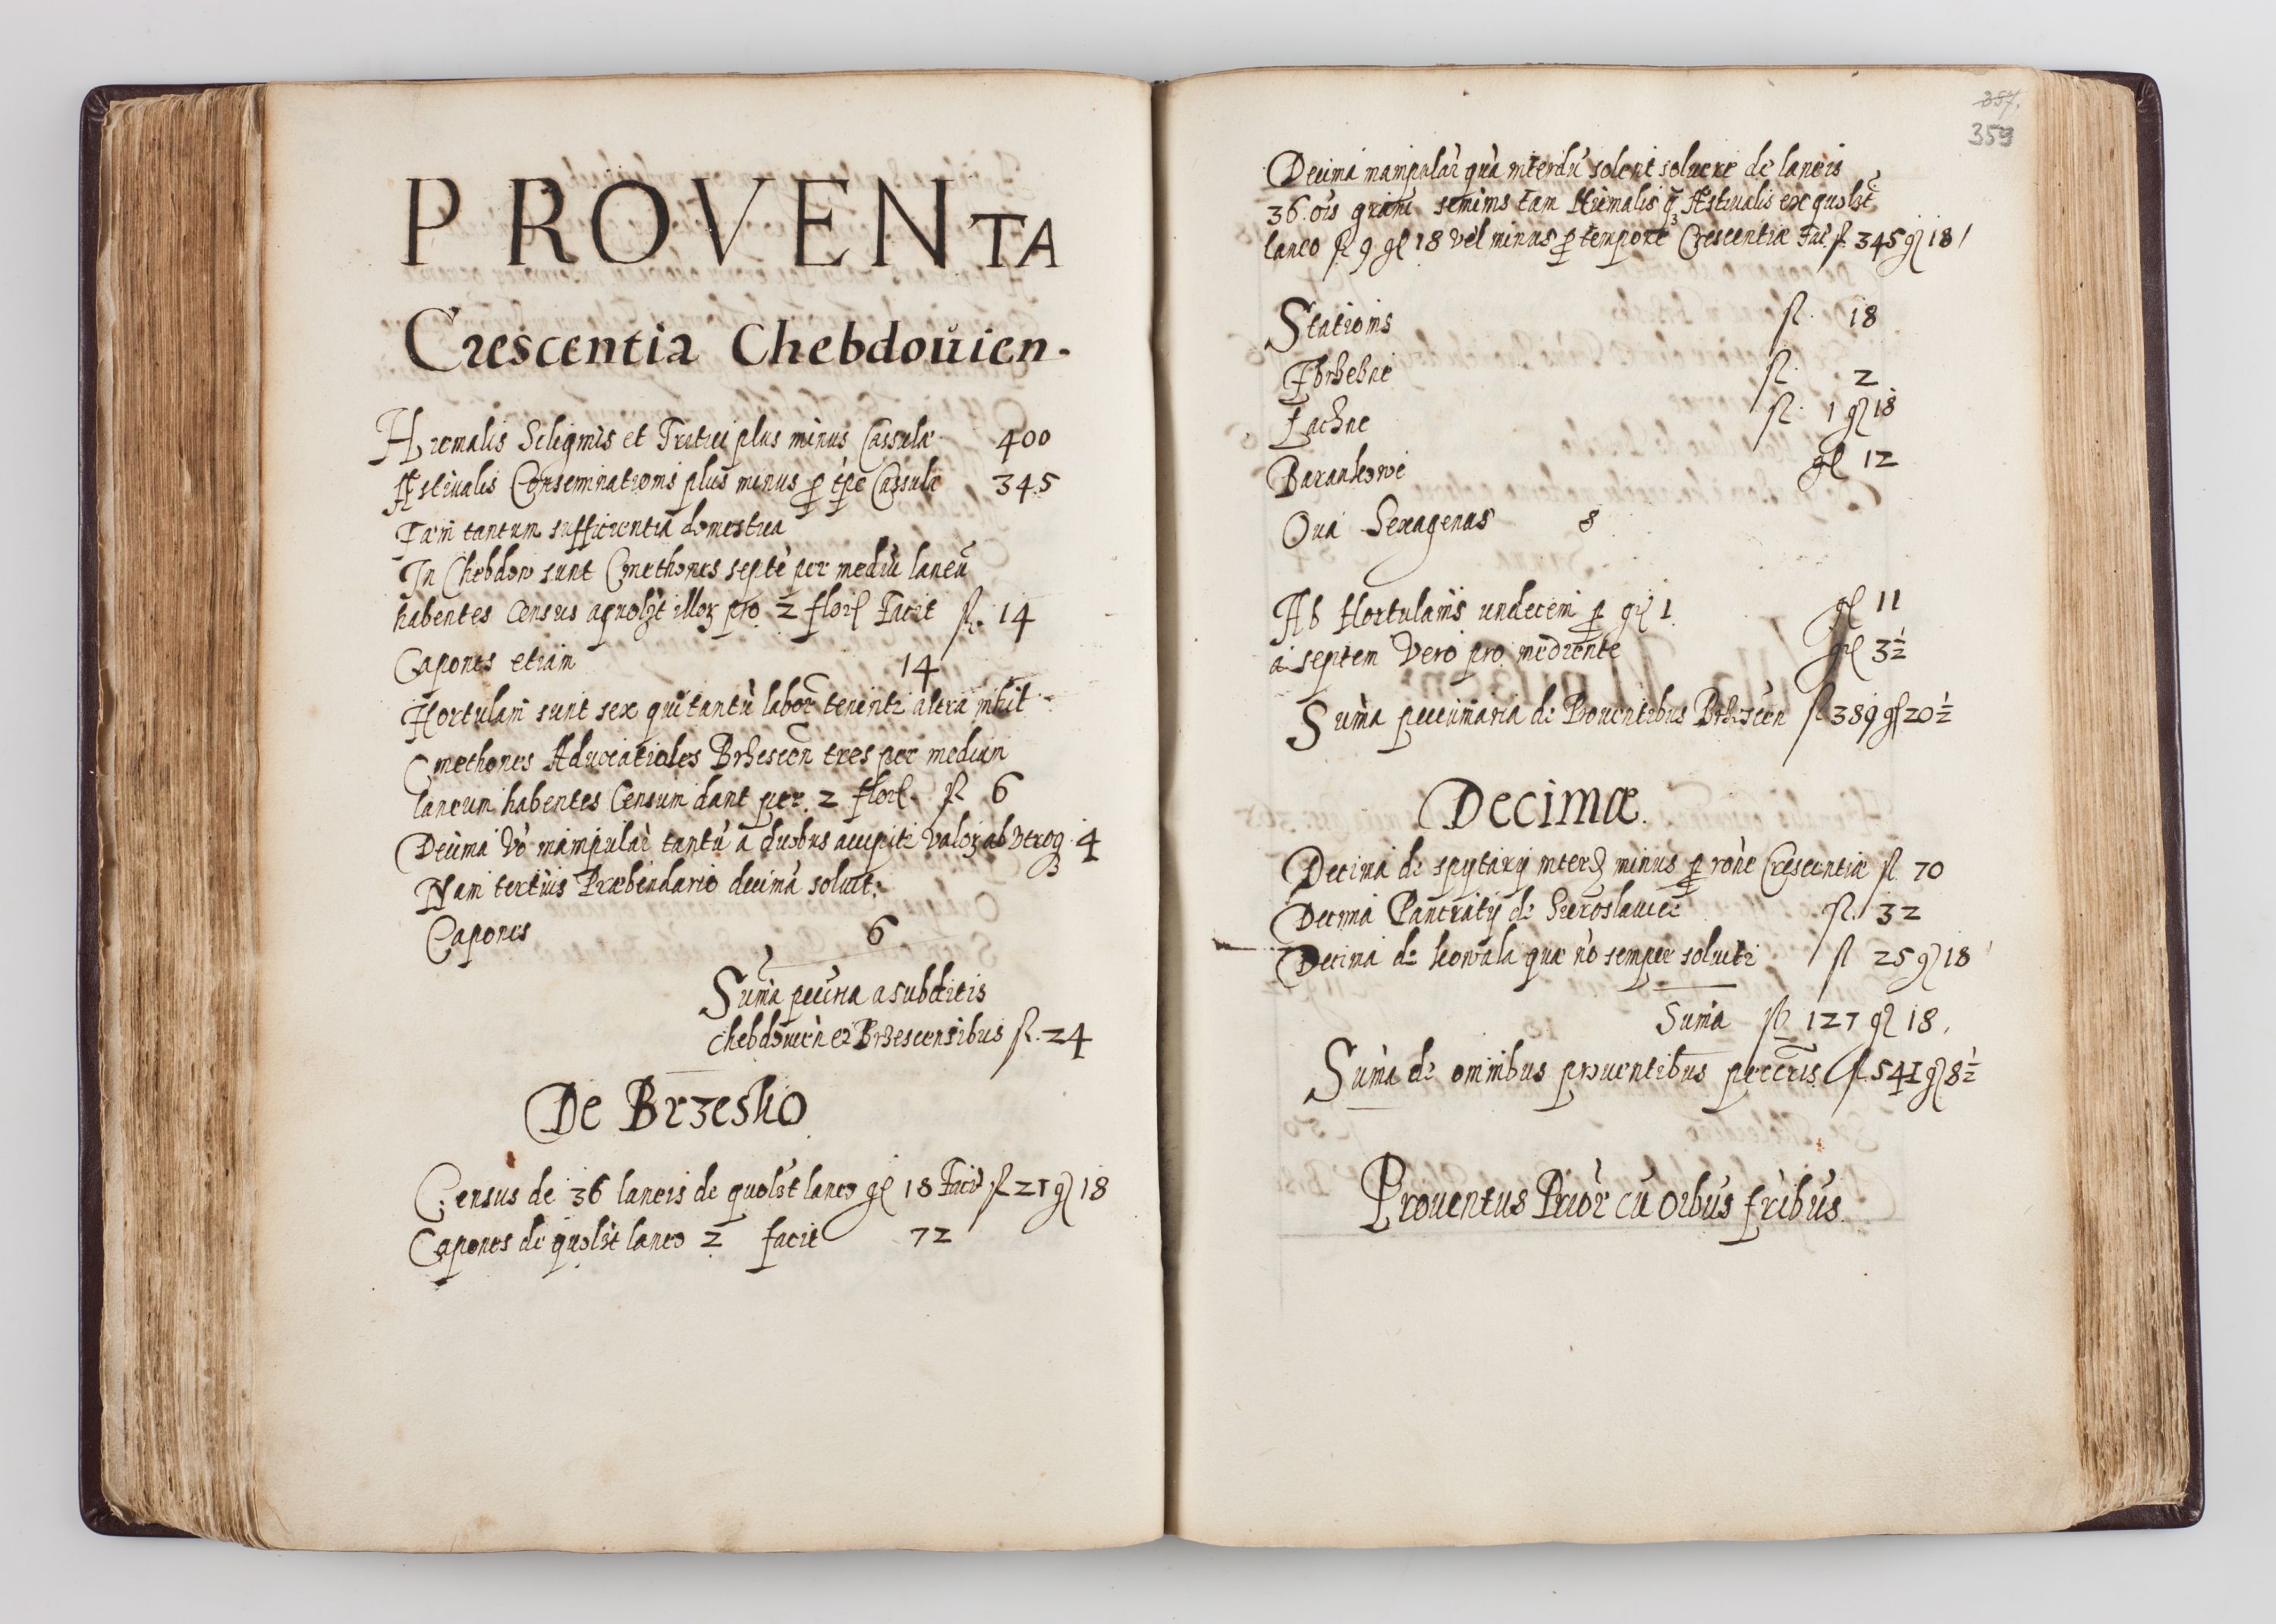 PROVENTA
Crescentia Chebdoŭien.
Hiemalis Siliginis et Tritici plus minus Cassulæ 400
Æstiualis Conseminationis plus minus ꝑ tp̄e Cassulæ 345
Fœni tantum sufficientia domestica
In Chebdow sunt Cmethones septē per mediū laneū
habentes Census a quolꝫt illoꝝ pro 2 flor Facit fl. 14
Capones etiam 14
Hortulani sunt sex qui tantū labor̄ tenentr altra nihil
Cmethones Aduocatiales Brzescen̄ tres per medium
laneum habentes Censum dant per 2 flor. fl 6
Decima Vō manipular̄ tantū a duobus accipitr valoꝝ ab vtroqꝫ 4
Nam tertius Præbendario decimā soluit.
Capones 6
Suma pecūria a subditis
Chebdouien̄ et Brzescensibus fl. 24
De Brzesko
Census de 36 laneis de quolꝫt laneo gr 18 Facit fl 21 gr 18
Capones de quolꝫt laneo 2 facit 72
357.
359
Decima manipular̄ quā interdū solent soluere de laneis
36. ois grani seminis tam Hiemalis qꝫ Æstiualis ex quolꝫt
laneo fl 9 gr 18 vel minus ꝑ tempore Crescentiæ Fac fl. 345 gr 18
Stationis fl. 18
fl. 2
fl. 1 gr 18
Barankowe gr 12
Oua Sexagenas 8
Ab Hortulanis undecem ꝑ gr 1. gr 11
a septem Vero pro mediente gr 3½
Suma pecuniaria de Prouentibus Brzescen̄ fl 389 gr 20½
Decimæ.
Decima de spytkary interd minus ꝑ rōne Crescentiæ fl 70
Decima Pancratij de Sieroslawice fl. 32
Decima de kowala quæ nō semper soluitr fl 25 gr 18
Suma fl 127 gr 18.
Suma de omnibus prouentibus pecc̄ris fl. 541 gr 8½
Prouentus Prior̄ cū oibus fr̄ibus.